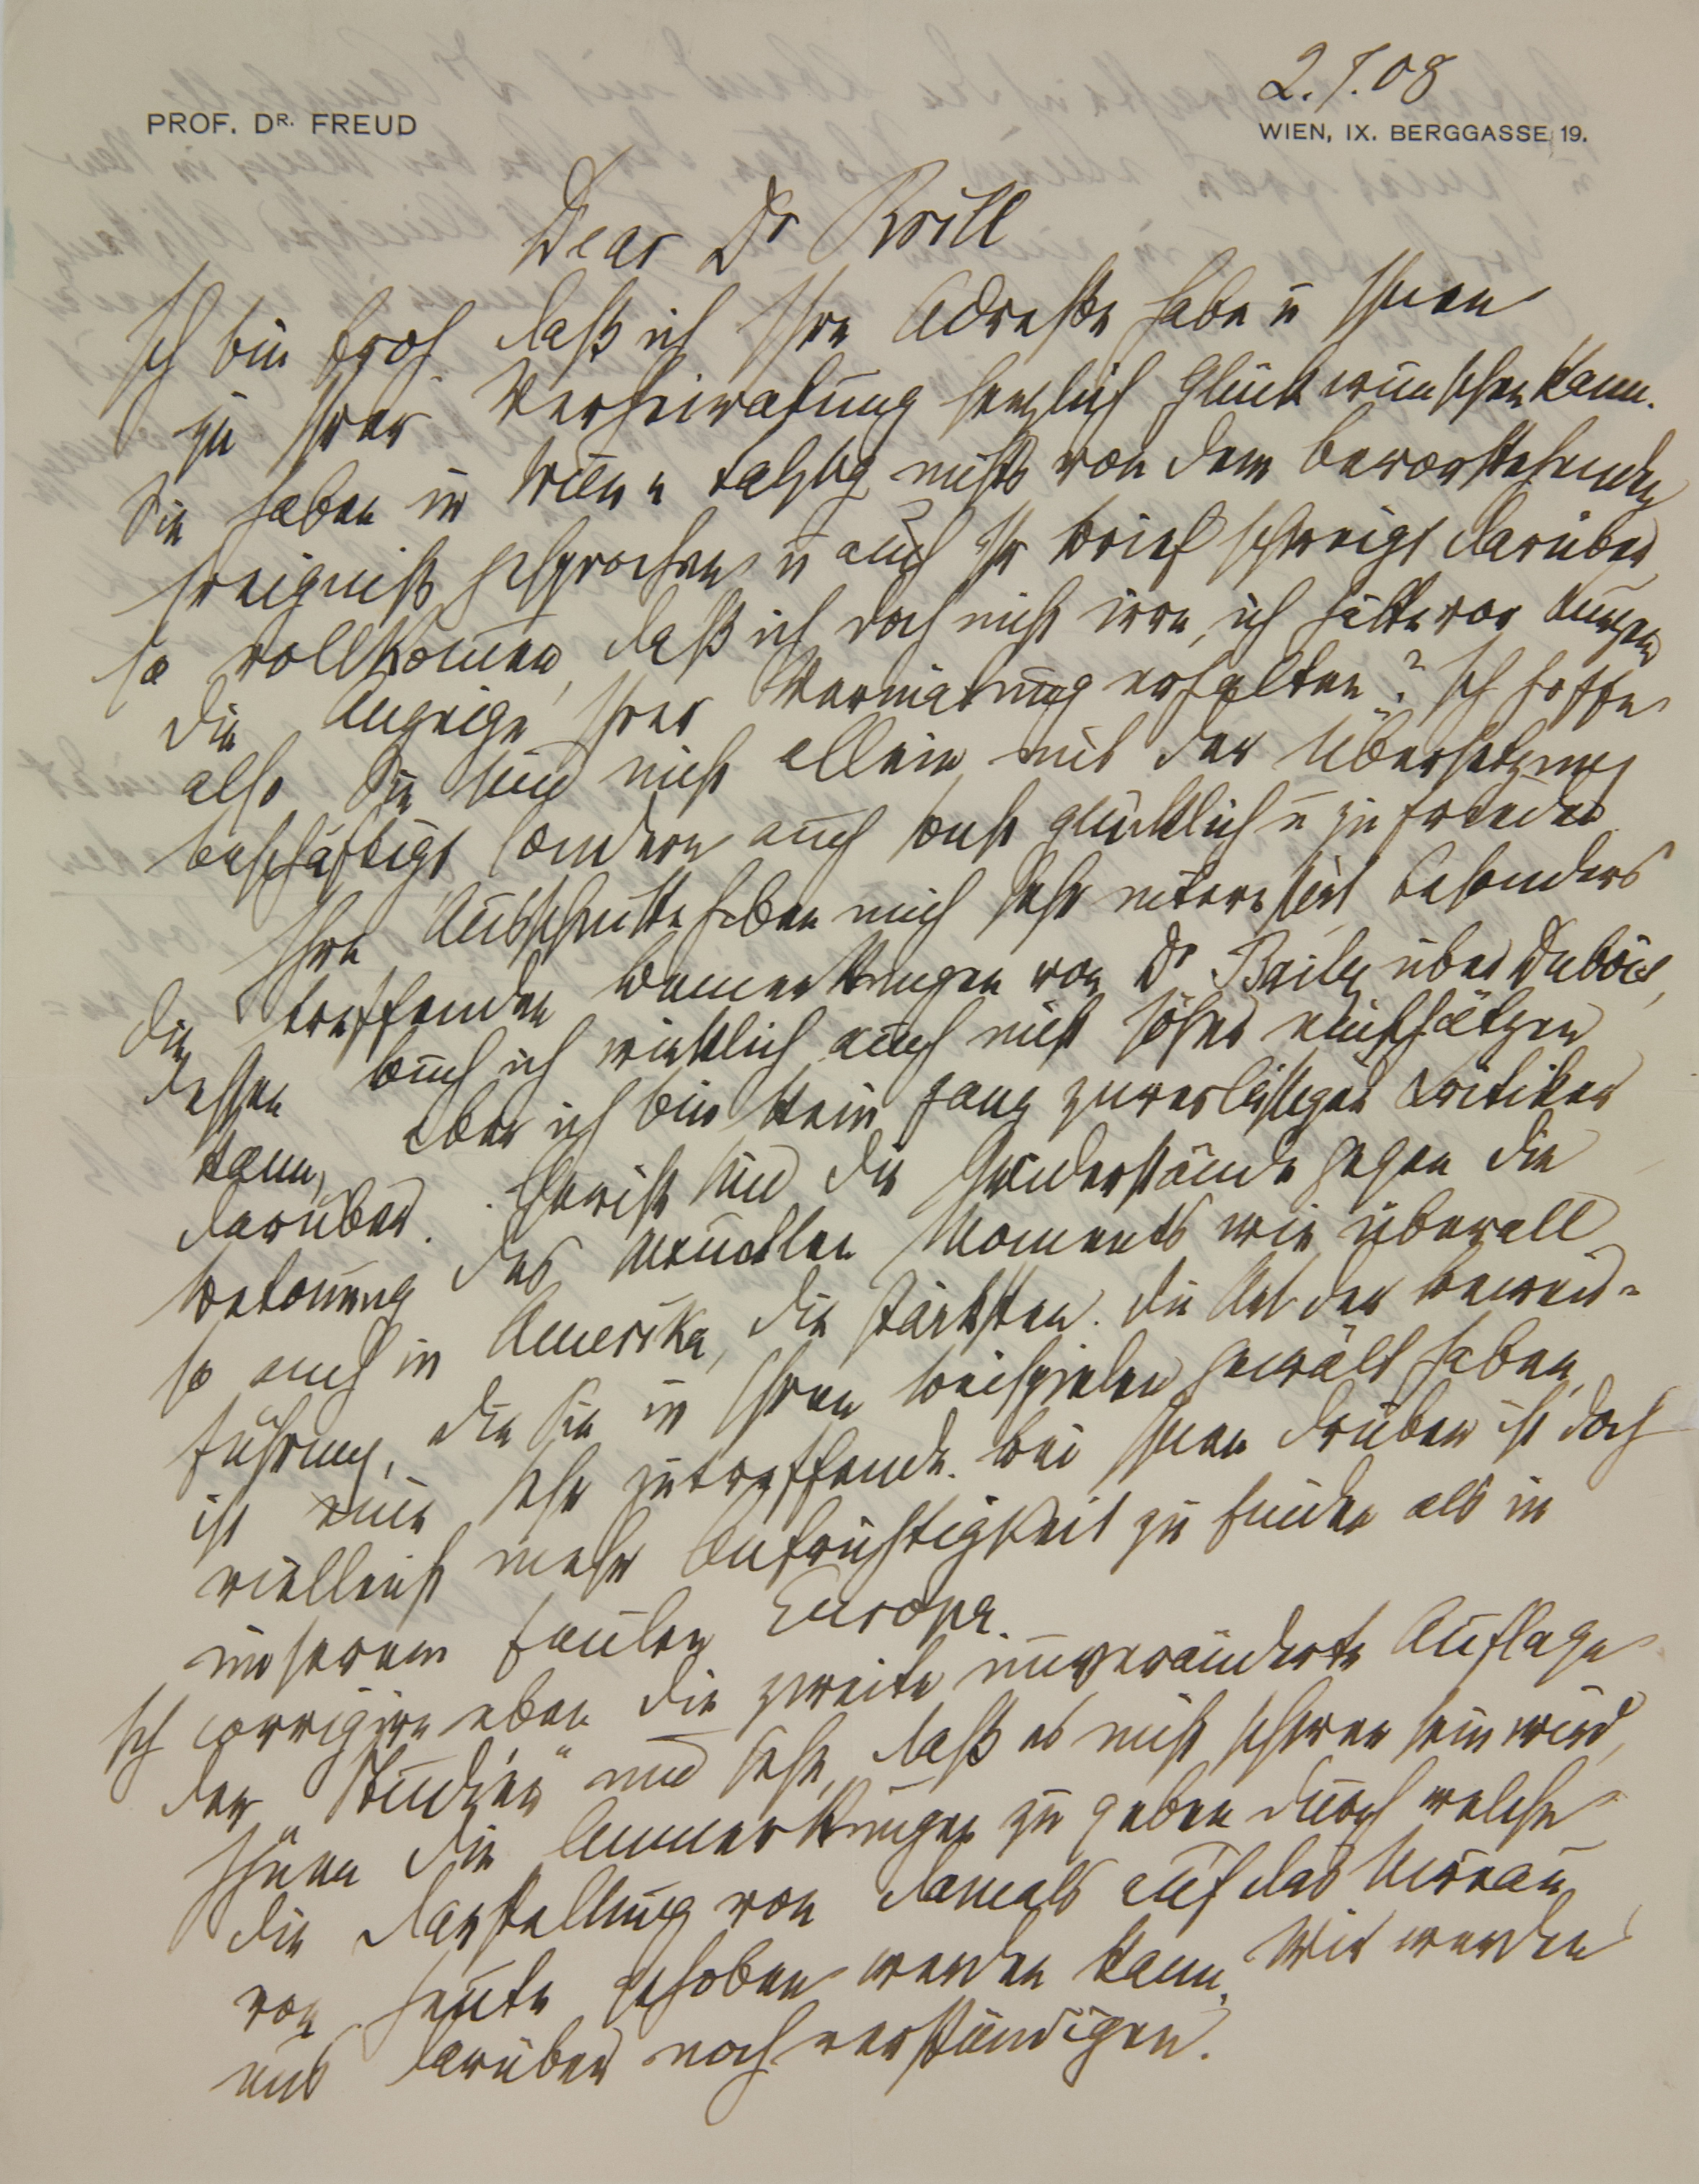 2.7.08
PROF. DR. FREUD
WIEN, IX. BERGGASSE 19.
Dear Dr Brill
Ich bin froh daß ich Ihre Adresse habe u Ihnen
zu Ihrer Verheiratung herzlich Glück wünschen kann.
Sie haben in Wien u Salzbg nichts von dem bevorstehenden
Ereigniß gesprochen u auch Ihr Brief schweigt darüber
so vollkommen, daß ich doch nicht irre, ich hätte vor kurzem
die Anzeige Ihrer Vermälung erhalten? Ich hoffe
also Sie sind nicht allein mit der Übersetzung
beschäftigt sondern auch sonst glücklich u zufrieden
Ihre Ausschnitte haben mich sehr interessirt besonders
die treffenden Bemerkungen von Dr Baily über Dubois,
dessen Buch ich wirklich auch nicht höher einschätzen
kann, aber ich bin kein ganz zuverlässiger Kritiker
darüber. Gewiß sind die Widerstände gegen die
Betonung des sexuellen Moments wie überall
so auch in Amerika, die stärksten. Die Art der Beweis-
führung, die Sie in Ihren Beispielen gewält haben,
ist eine sehr zutreffende. Bei Ihnen drüben ist doch
vielleicht mehr Aufrichtigkeit zu finden als in
unserem faulen Europa.
Ich corrigire eben die zweite unveränderte Auflage
der „Studien“ und sehe, daß es nicht schwer sein wird,
Ihnen die Anmerkungen zu geben durch welche
die Darstellung von damals auf das Niveau
von heute gehoben werden kann. Wir werden
uns darüber noch verständigen.